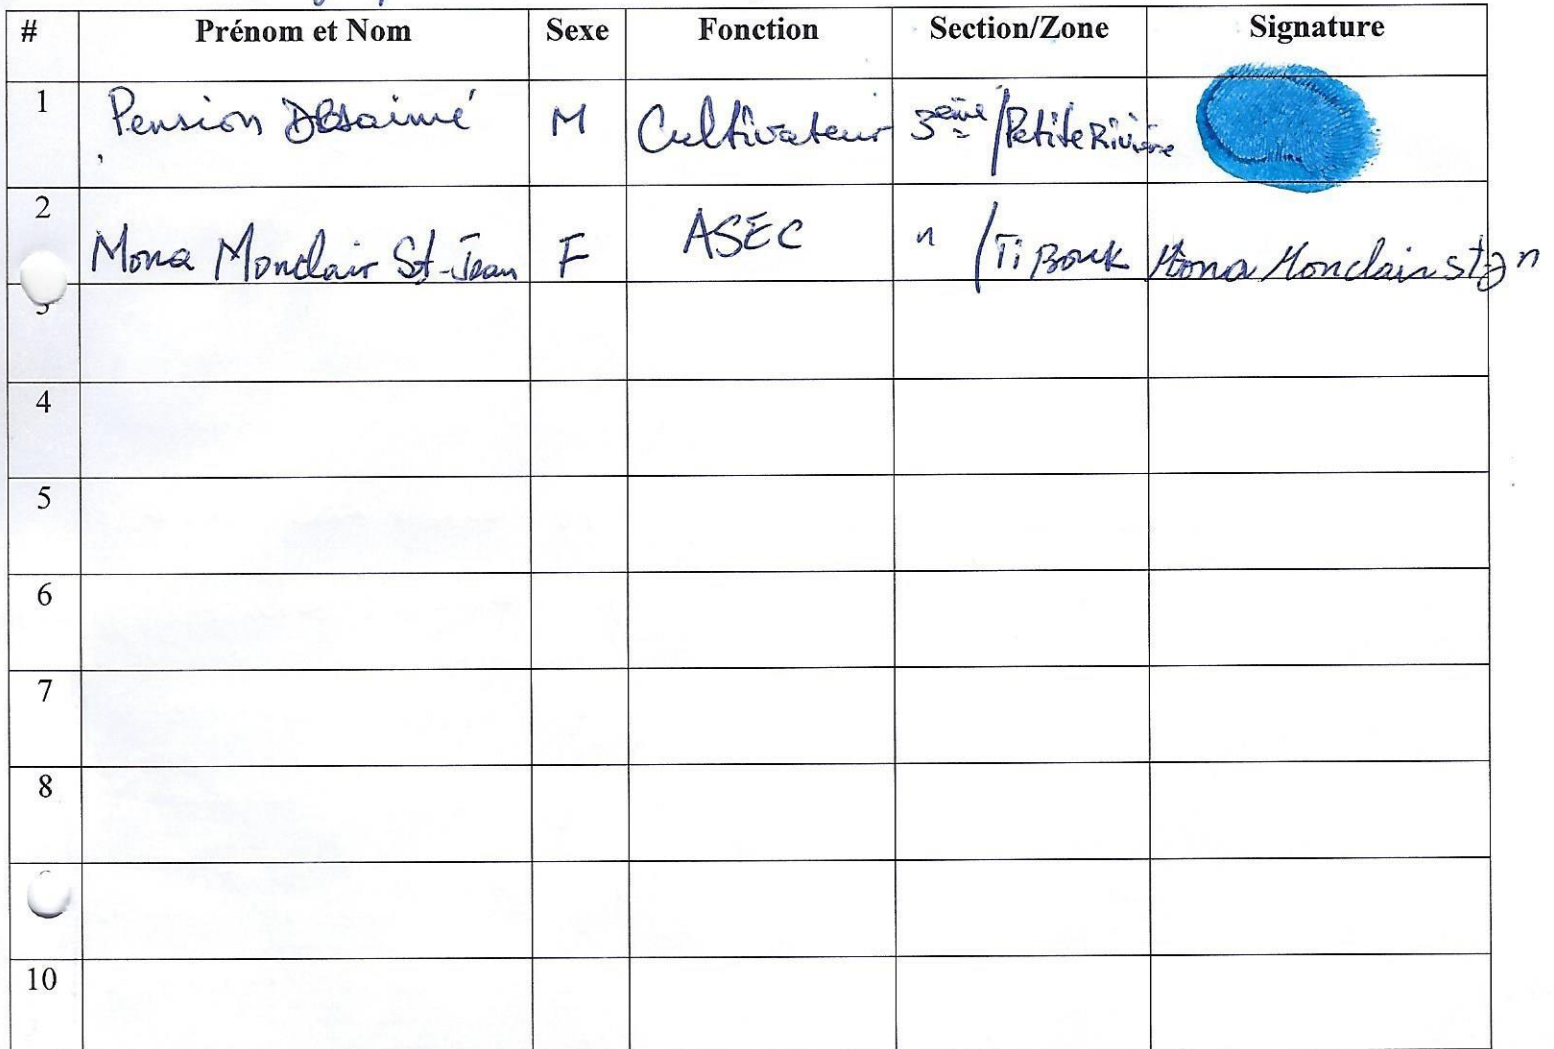 # Prénom et Nom Sexe Fonction Section/Zone Signature
1 Pension Désaimé M Cultivateur 3ème/Petite Rivière
2 Mona Monclair St-Jean F ASEC " /Ti Bouk Mona Monclair st Jn
3
4
5
6
7
8
10